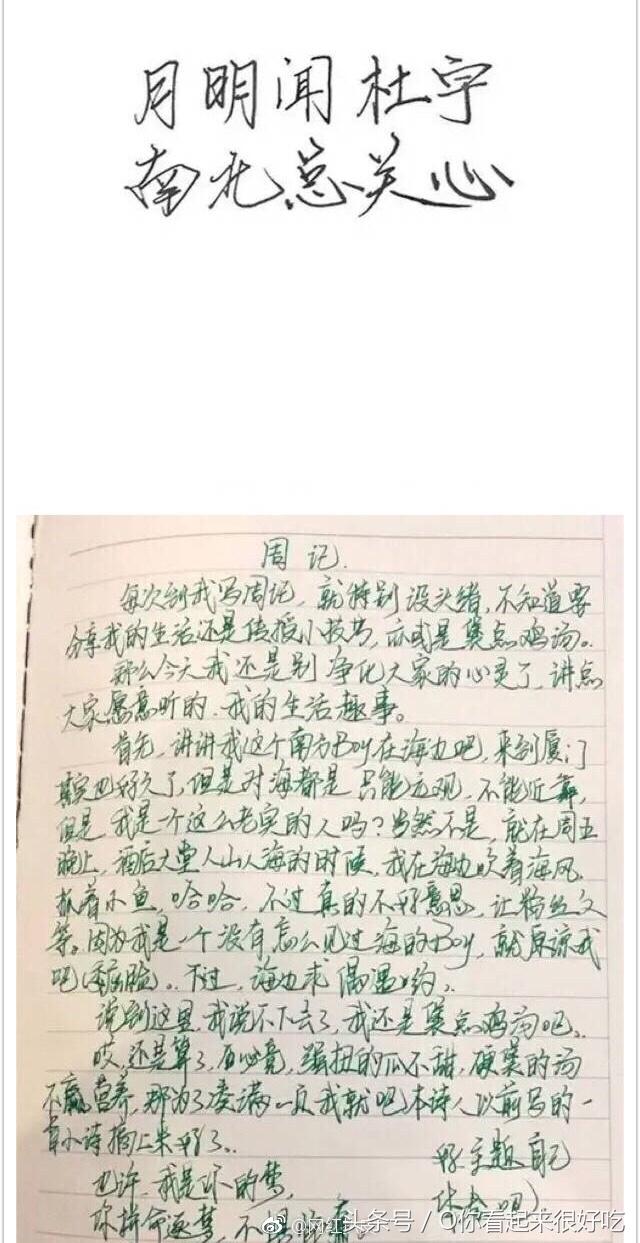 月明闻杜宇
南北总关心
周记.
每次到我写周记,就特别没头绪,不知道要
分享我的生活还是传授小技巧,亦或是煲点鸡汤。
那么今天我还是别净化大家的心灵了,讲点
大家愿意听的,我的生活趣事。
首先,讲讲我这个南方Boy在海边吧,来到厦门
其实也好久了,但是对海都是只能远观,不能近靠,
但是我是一个这么老实的人吗?当然不是,就在周五
晚上,酒店大堂人山人海的时候,我在海边吹着海风
抓着小鱼,哈哈,不过真的不好意思,让粉丝久
等。因为我是一个没有怎么见过海的Boy,就原谅我
吧(委屈脸)。不过,海边求偶遇哟。
说到这里,我说不下去了,我还是煲点鸡汤吧。
哎,还是算了,毕竟,强扭的瓜不甜,硬煲的汤
不赢营养,那为了凑满一页我就把本诗人以前写的一
首小诗摘上来好了。
好主题自己
也许,我是你的梦,
你拼命逐梦,不
@网红头条号 / @你看起来很好吃